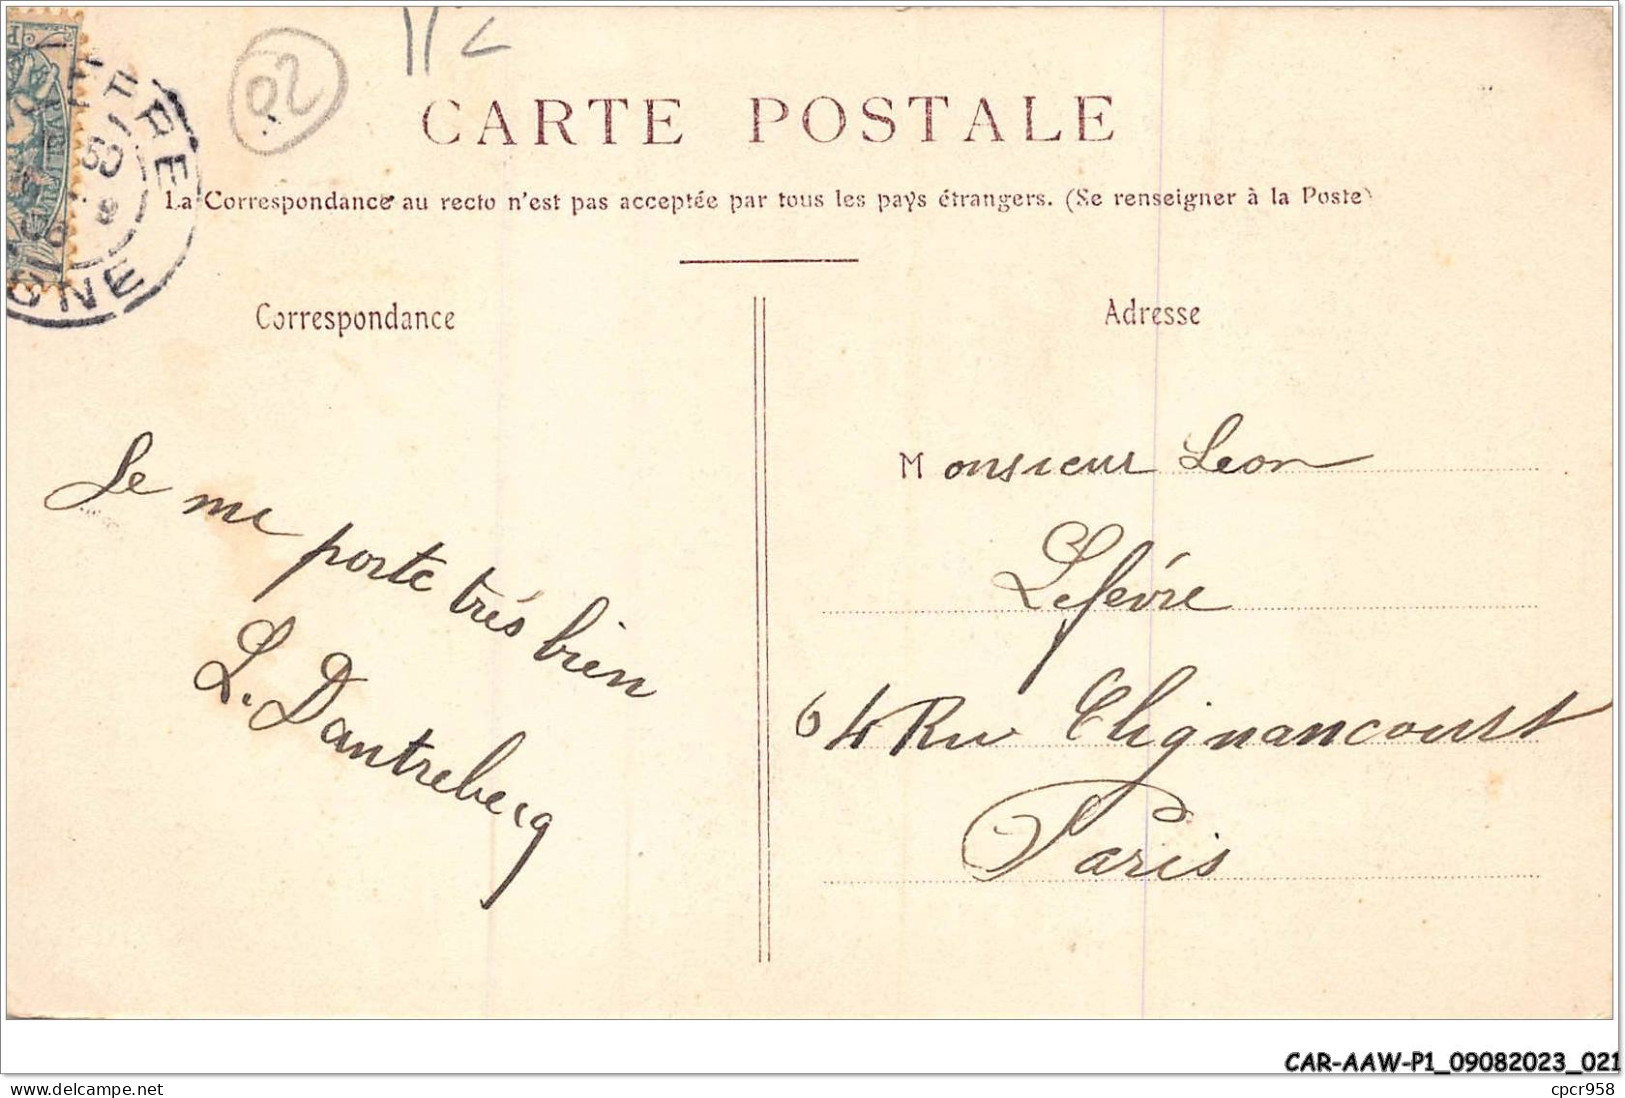 02
CARTE POSTALE
La Correspondance au recto n'est pas acceptée par tous les pays étrangers. (Se renseigner à la Poste)
Correspondance
Je me porte très bien
L. Dantreberg
Adresse
Monsieur Leon
Lefévre
64 Rue Clignancourt
Paris
CAR-AAW-P1_09082023_021
www.delcampe.net
cpcr958